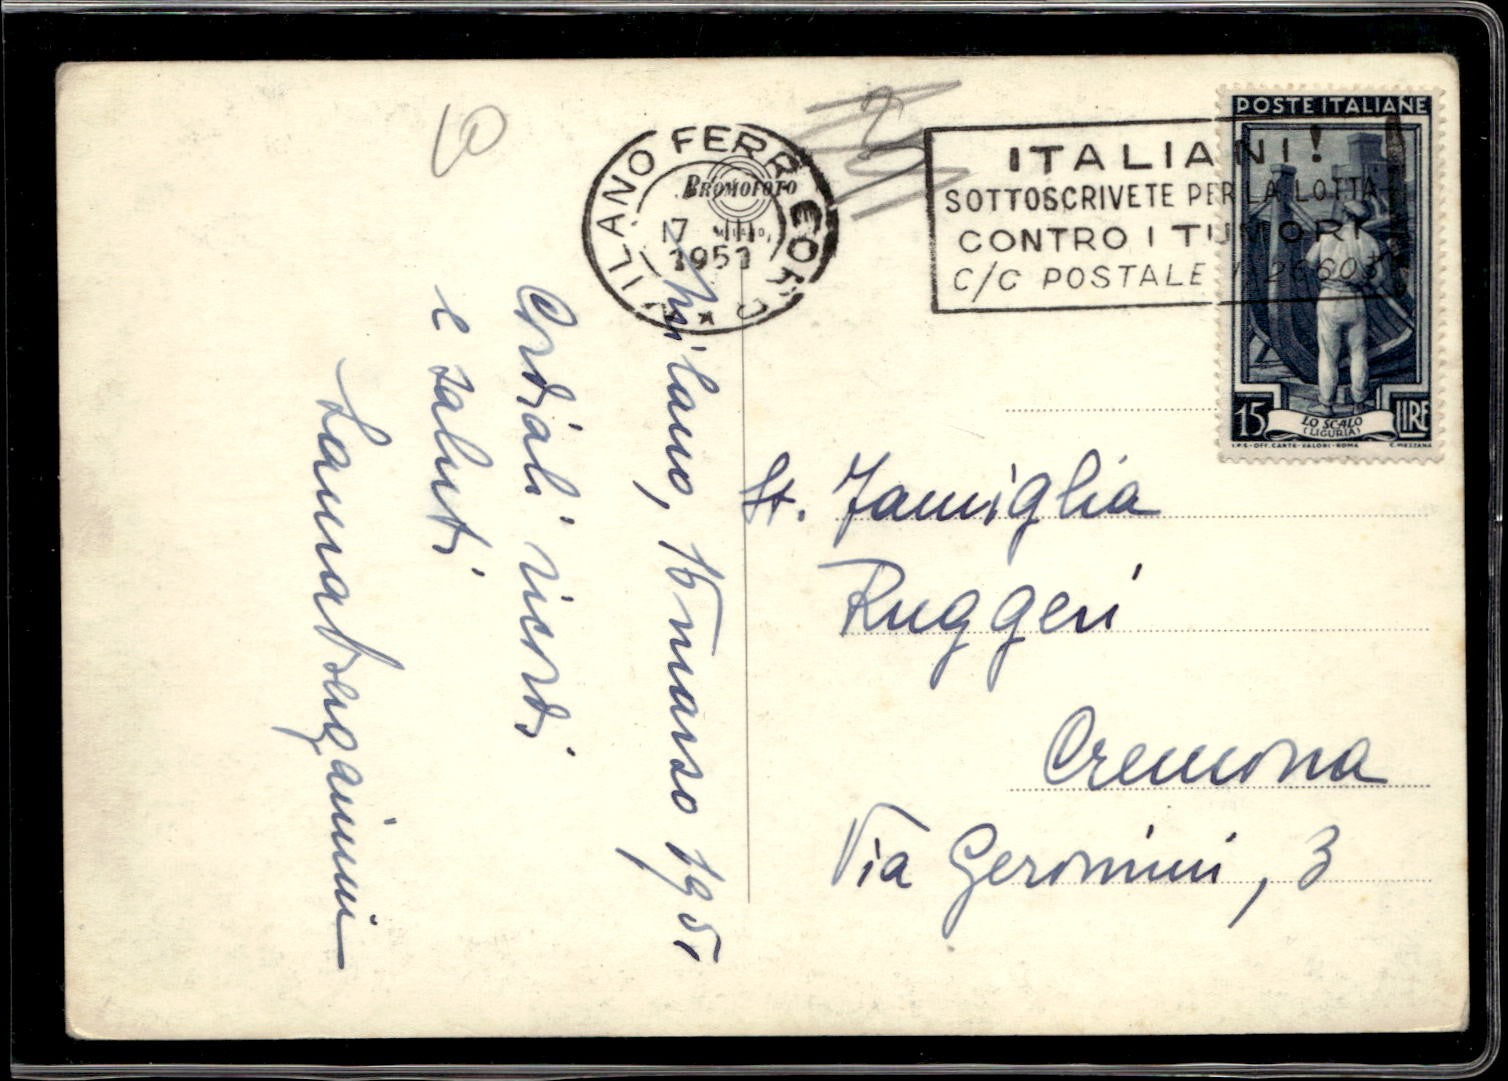 10
MILANO FERROVIA
17 III
1951
BROMOFOTO
MILANO
ITALIANI!
SOTTOSCRIVETE PER LA LOTTA
CONTRO I TUMORI
C/C POSTALE
POSTE ITALIANE
15 LIRE
LO SCALO
(LIGURIA)
I.P.S.-OFF.CARTE-VALORI-ROMA
C. MEZZANA
Milano, 16 marzo 1951
Cordiali ricordi
e saluti
St. Famiglia
Ruggeri
Cremona
Via Geromini, 3